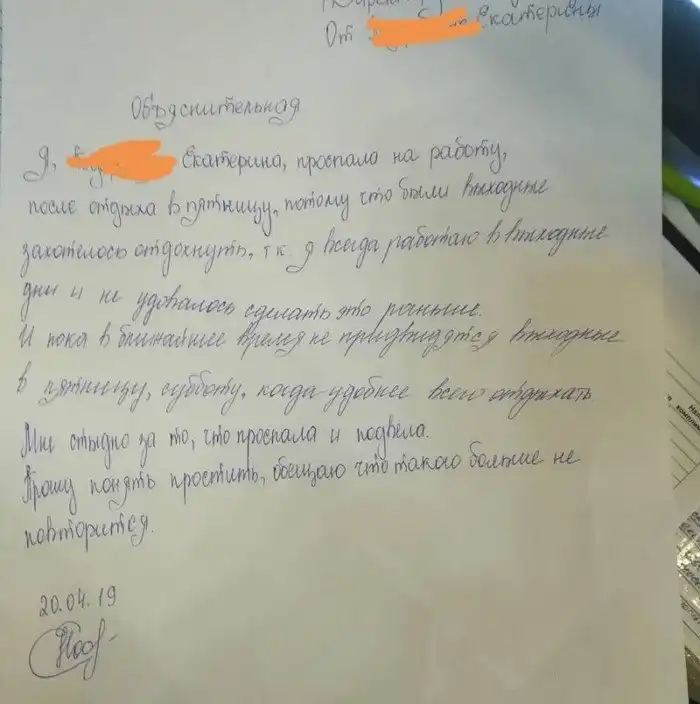 От Екатерины
Объяснительная
Я, Екатерина, проспала на работу,
после отдыха в пятницу, потому что были выходные
захотелось отдохнуть, т.к. я всегда работаю в выходные
дни и не удовалось сделать это раньше.
И пока в ближайшее время не придвидятся выходные
в пятницу, субботу, когда удобнее всего отдыхать
Мне стыдно за то, что проспала и подвела.
Прошу понять простить, обещаю что такого больше не
повторится.
20.04.19